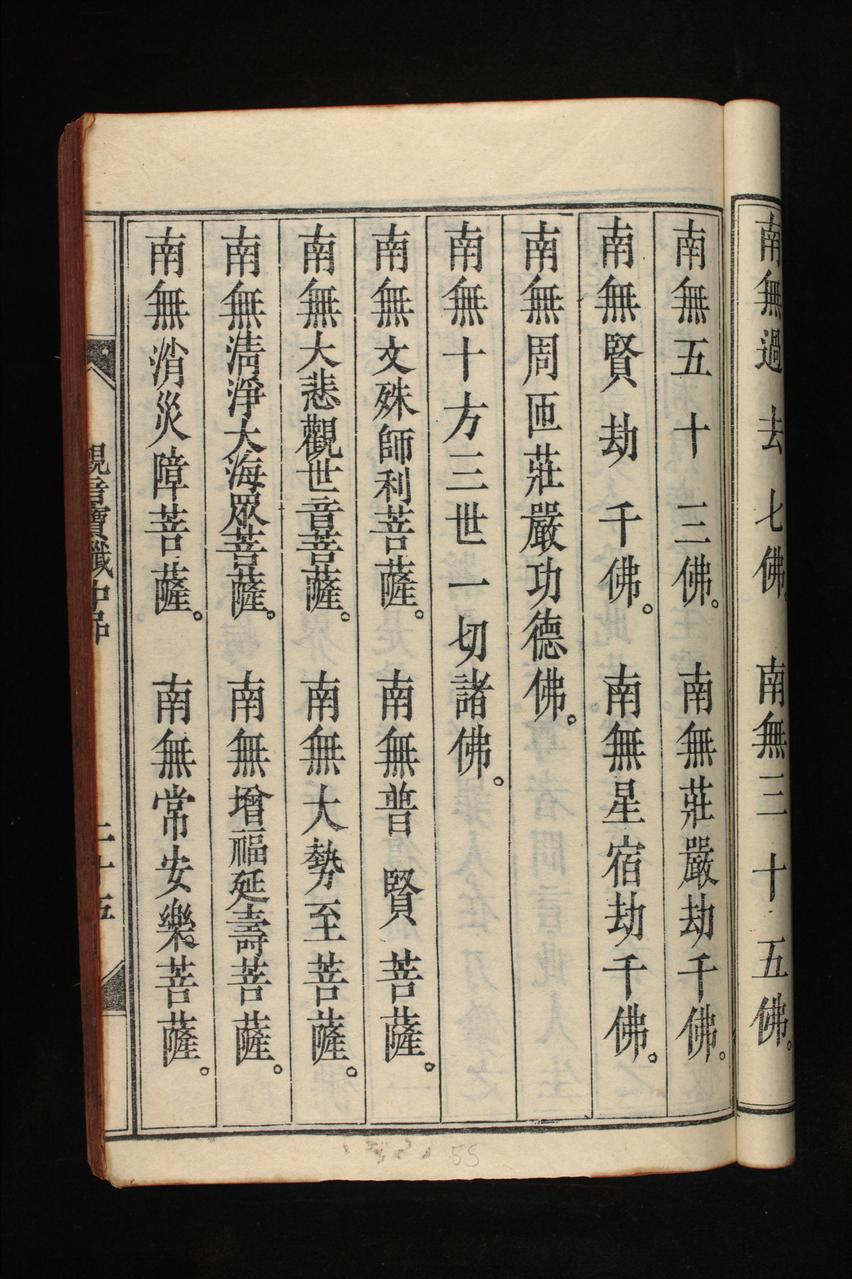 南無過去七佛。南無三十五佛。
南無五十三佛。南無莊嚴劫千佛。
南無賢劫千佛。南無星宿劫千佛。
南無周匝莊嚴功德佛。
南無十方三世一切諸佛。
南無文殊師利菩薩。南無普賢菩薩。
南無大悲觀世音菩薩。南無大勢至菩薩。
南無淸淨大海眾菩薩。南無增福延壽菩薩。
南無消災障菩薩。南無常安樂菩薩。
觀音寶懺中品 二十五
55